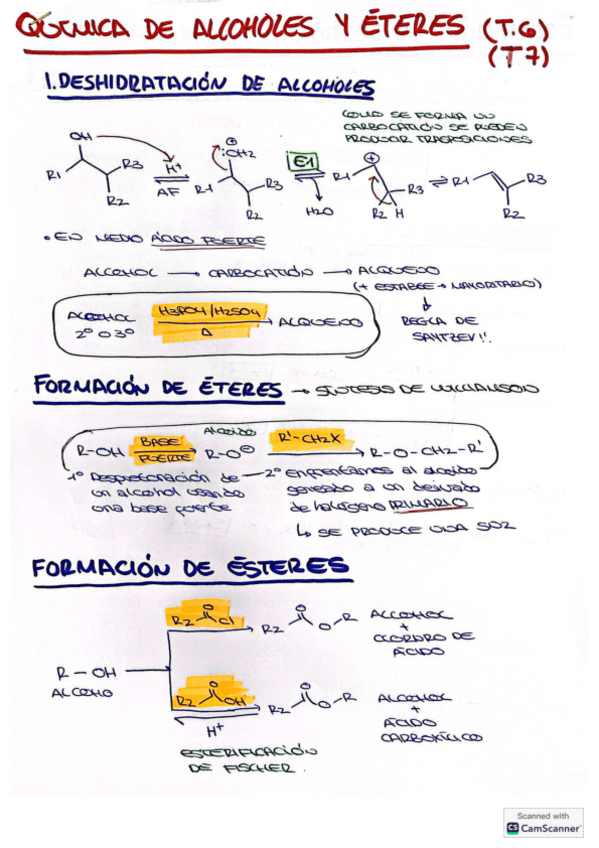 QUÍMICA DE ALCOHOLES Y ÉTERES (T.6)
(T7)
1. DESHIDRATACIÓN DE ALCOHOLES
COMO SE FORMA UN
CARBOCATIÓN SE PUEDEN
PRODUCIR TRASPOSICIONES
OH R1 R2 R3 H+ AF ⊕ :OH2 R1 R2 R3 E1 H2O ⊕ R1 R2 H R3 R1 R3 R2
• EN MEDIO ÁCIDO FUERTE
ALCOHOL → CARBOCATIÓN → ALQUENO
(+ ESTABLE → MAYORITARIO)
ALCOHOL 2º O 3º H3PO4/H2SO4 Δ ALQUENO
REGLA DE
SAYTZEV!!
FORMACIÓN DE ÉTERES → SÍNTESIS DE WILLIAMSON
R-OH BASE FUERTE Alcóxido R-O⊖ R'-CH2X R-O-CH2-R'
1º Desprotonación de
un alcohol usando
una base fuerte
2º Enfrentamos al alcóxido
generado a un derivado
de halógeno PRIMARIO
↳ SE PRODUCE UNA SN2
FORMACIÓN DE ÉSTERES
R2 O Cl R2 O O-R ALCOHOL
+
CLORURO DE
ÁCIDO
R-OH
ALCOHO
R2 O OH H+ R2 O O-R ALCOHOL
+
ÁCIDO
CARBOXÍLICO
ESTERIFICACIÓN
DE FISCHER.
Scanned with
CS CamScanner